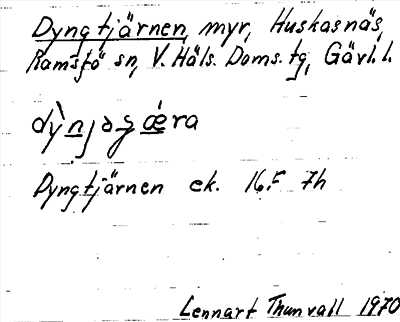 Dyngtjärnen, myr, Huskasnäs,
Ramsjö sn, V. Häls. Doms. tg, Gävl. l.
dỳnjəgǽra
Dyngtjärnen ek. 16F 7h
Lennart Thunvall 1970